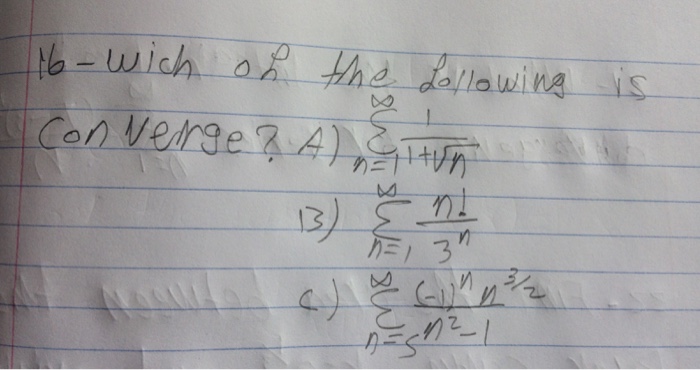 16-wich of the following is
converge? A) ∞ Σ n=1 1/(1+√n)
B) ∞ Σ n=1 n!/3^n
C) ∞ Σ n=5 (-1)^n n^3/2 / (n^2-1)